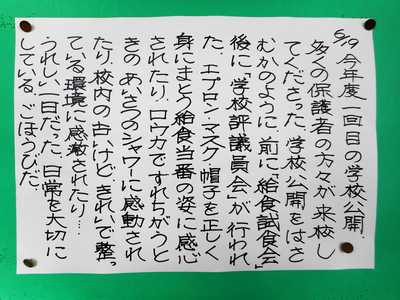 5/19 今年度一回目の学校公開.
多くの保護者の方々が来校し
てくださった. 学校公開をはさ
むかのように、前に「給食試食会」
後に「学校評議員会」が行われ
た. エプロン・マスク・帽子を正しく
身にまとう給食当番の姿に感心
されたり、ロウカですれちがうと
きのあいさつのシャワーに感動され
たり、校内の古いけどきれいで整っ
ている環境に感激されたり…
うれしい一日だった. 日常を大切に
している. ごほうびだ.